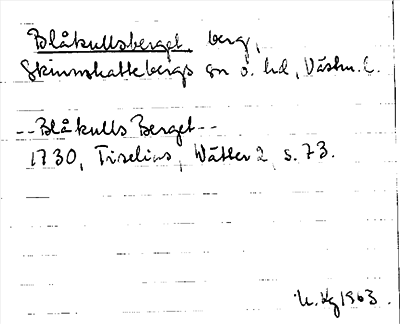 Blåkullsberget, berg,
Skinnskattebergs sn o. hd, Västm. l.
--Blåkulls Berget--
1730, Tiselius, Wätter 2, s. 73.
1963